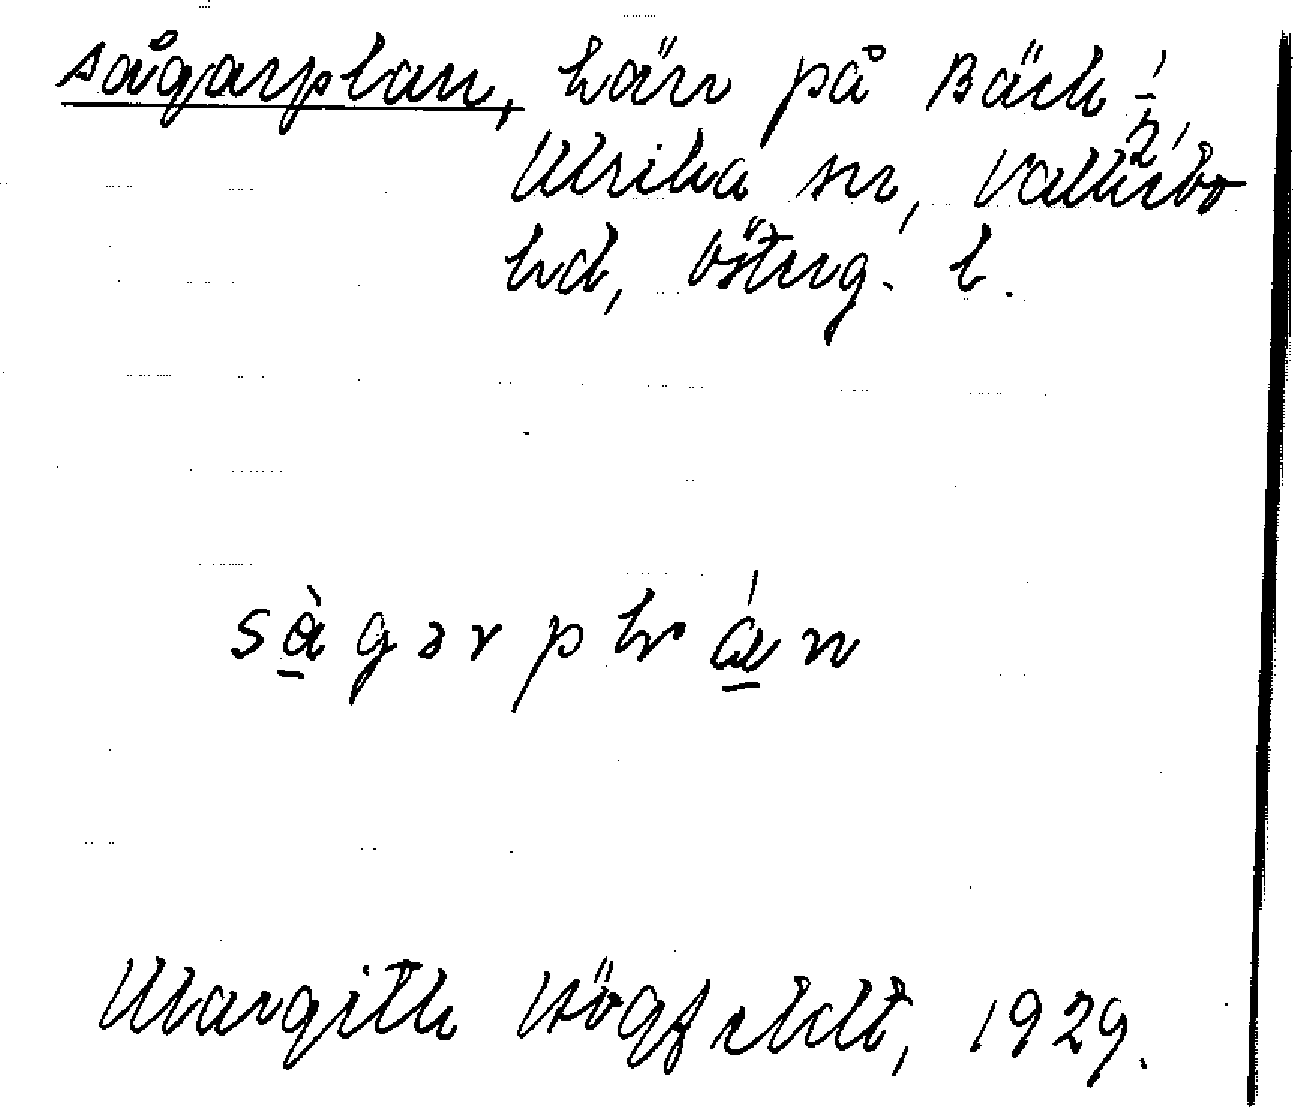 sågarplan, kärr på Bäck 1/2,
Ulrika sn, Valkebo
hd, Österg. l.
sàgərplán
Margith Högfeldt, 1929.